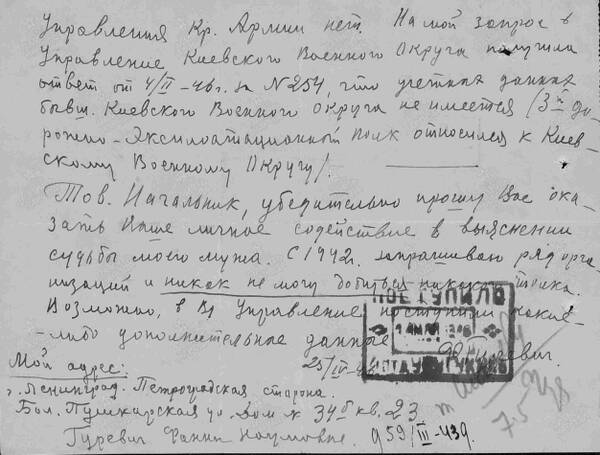 Управления Кр. Армии нет. На мой запрос в
Управление Киевского Военного Округа получила
ответ от 4/II-46г. за №254, что учетных данных
бывш. Киевского Военного Округа не имеется (3й до-
рожно-Эксплоатационный полк относился к Киев-
скому Военному Округу).
Тов. Начальник, убедительно прошу Вас ока-
зать Ваше личное содействие в выяснении
судьбы моего мужа. С 1942. запрашиваю ряд орга-
низаций и никак не могу добиться никакого толка.
Возможно, в Ваше Управление поступили какие-
-либо дополнительные данные
ПОСТУПИЛО
Гуревич.
25/III-
Мой адрес:
г. Ленинград. Петроградская сторона.
Бол. Пушкарская ул. Дом № 34б кв. 23
Гуревич Фанни Наумовне.
959/III-43г.